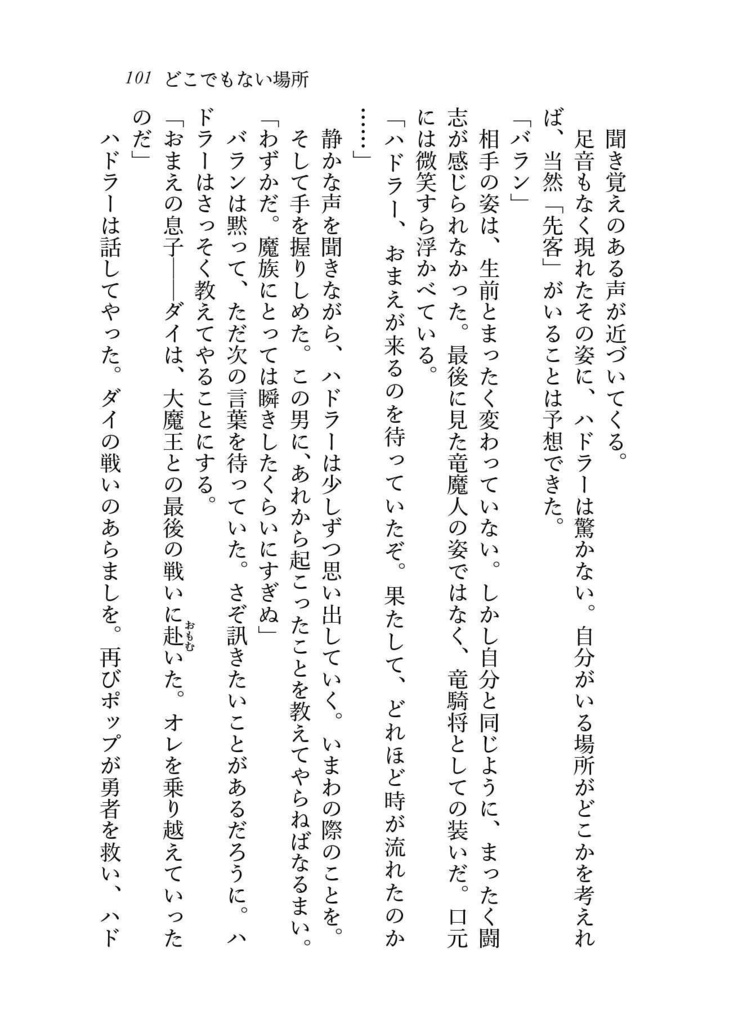 101 どこでもない場所
聞き覚えのある声が近づいてくる。
足音もなく現れたその姿に、ハドラーは驚かない。自分がいる場所がどこかを考えれ
ば、当然「先客」がいることは予想できた。
「バラン」
相手の姿は、生前とまったく変わっていない。しかし自分と同じように、まったく闘
志が感じられなかった。最後に見た竜魔人の姿ではなく、竜騎将としての装いだ。口元
には微笑すら浮かべている。
「ハドラー、おまえが来るのを待っていたぞ。果たして、どれほど時が流れたのか
……」
静かな声を聞きながら、ハドラーは少しずつ思い出していく。いまわの際のことを。
そして手を握りしめた。この男に、あれから起こったことを教えてやらねばなるまい。
「わずかだ。魔族にとっては瞬きしたくらいにすぎぬ」
バランは黙って、ただ次の言葉を待っていた。さぞ訊きたいことがあるだろうに。ハ
ドラーはさっそく教えてやることにする。
「おまえの息子――ダイは、大魔王との最後の戦いに赴おもむいた。オレを乗り越えていった
のだ」
ハドラーは話してやった。ダイの戦いのあらましを。再びポップが勇者を救い、ハド